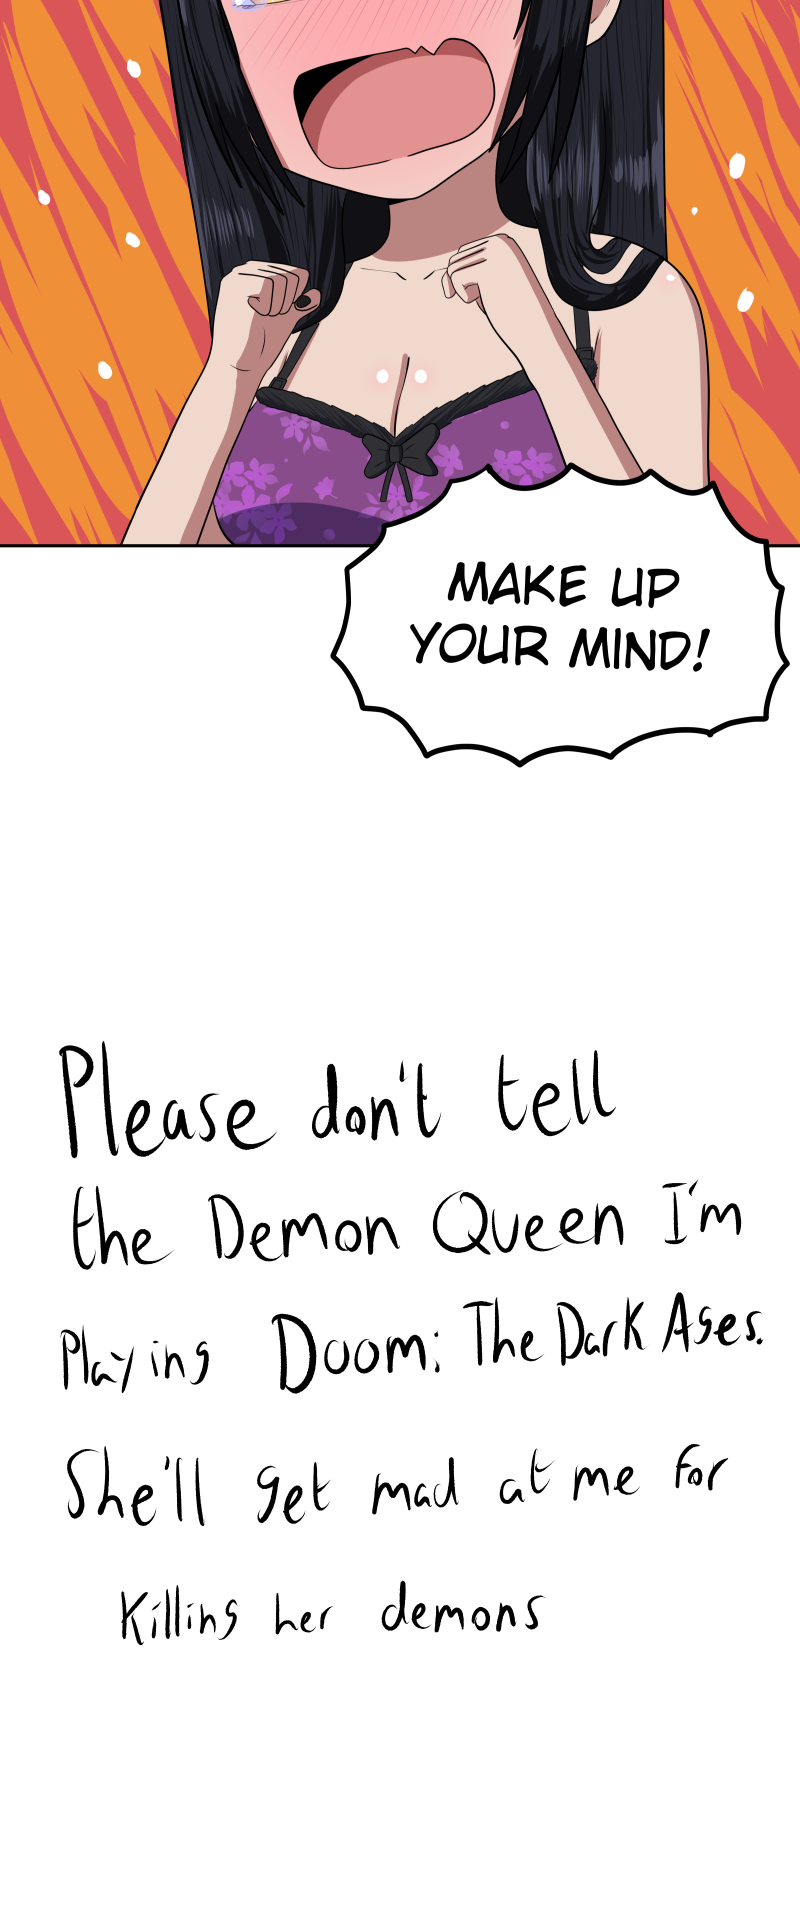 MAKE UP
YOUR MIND!
Please don't tell
the Demon Queen I'm
Playing Doom: The Dark Ages.
She'll get mad at me for
Killing her demons